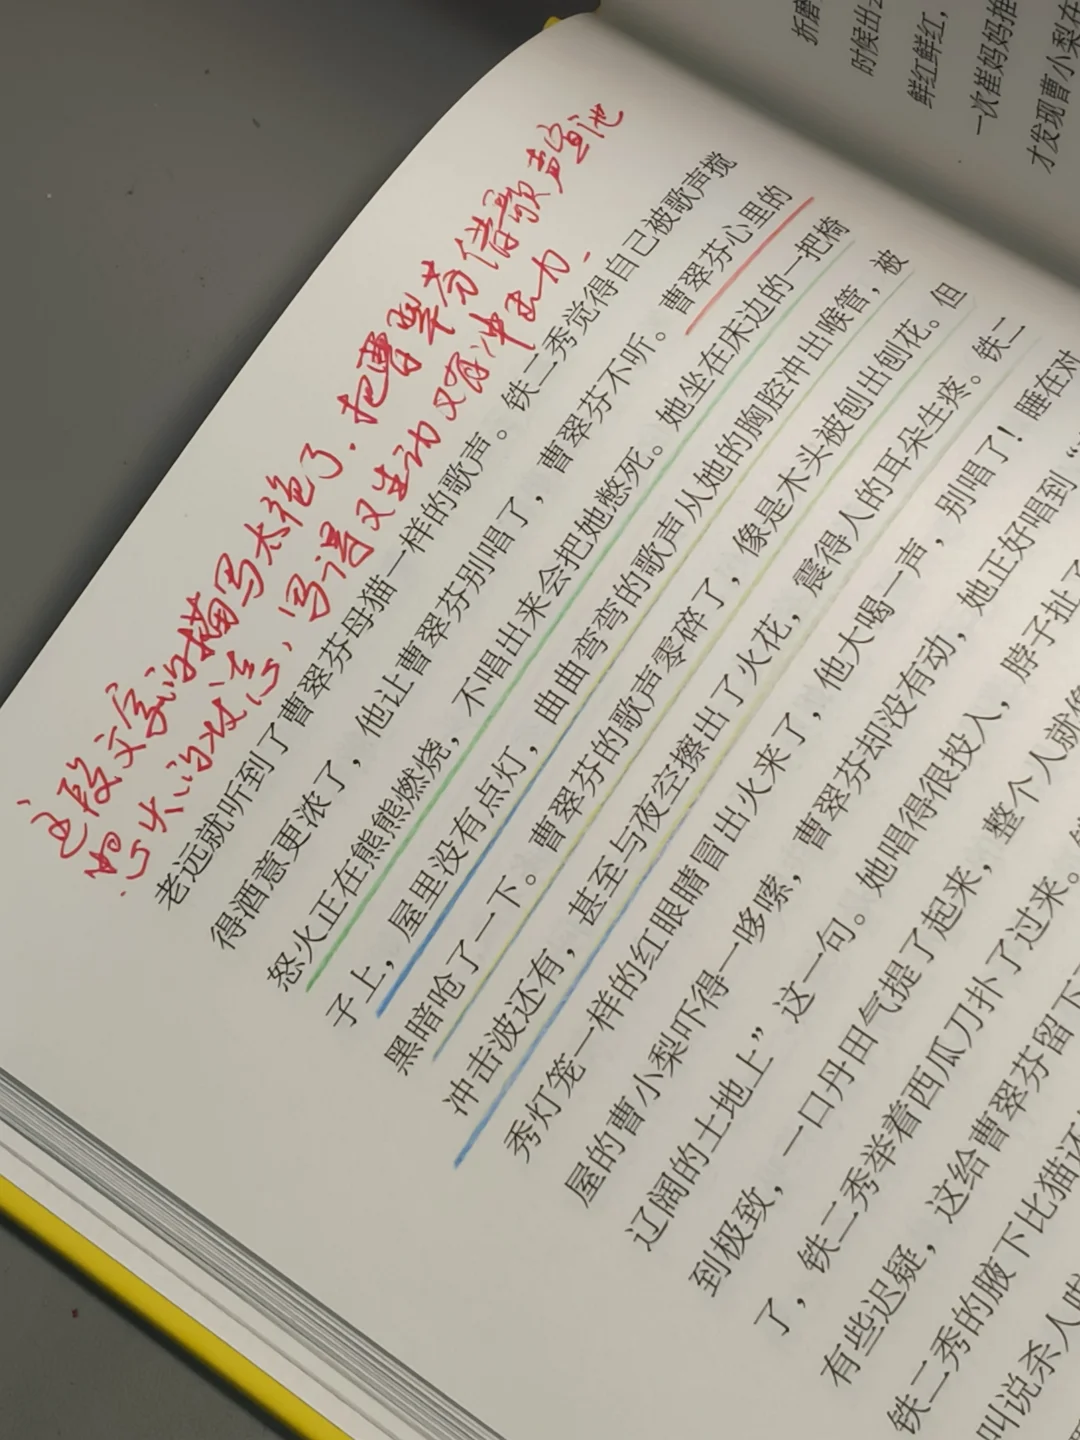 折磨
时候出去
鲜红鲜红，
一次崔妈妈推
才发现曹小梨在
这段文字的描写太绝了.把曹翠芬借歌声宣泄
怒火的状态，写得又生动又有冲击力.
老远就听到了曹翠芬母猫一样的歌声。铁二秀觉得自己被歌声搅
得酒意更浓了，他让曹翠芬别唱了，曹翠芬不听。曹翠芬心里的
怒火正在熊熊燃烧，不唱出来会把她憋死。她坐在床边的一把椅
子上，屋里没有点灯，曲曲弯弯的歌声从她的胸腔冲出喉管，被
黑暗呛了一下。曹翠芬的歌声零碎了，像是木头被刨出刨花。但
冲击波还有，甚至与夜空擦出了火花，震得人的耳朵生疼。铁二
秀灯笼一样的红眼睛冒出火来了，他大喝一声，别唱了！睡在对
屋的曹小梨吓得一哆嗦，曹翠芬却没有动，她正好唱到“
辽阔的土地上”这一句。她唱得很投入，脖子扯
到极致，一口丹田气提了起来，整个人就像
了，铁二秀举着西瓜刀扑了过来。
有些迟疑，这给曹翠芬留下
铁二秀的腋下比猫还
叫说杀人啦